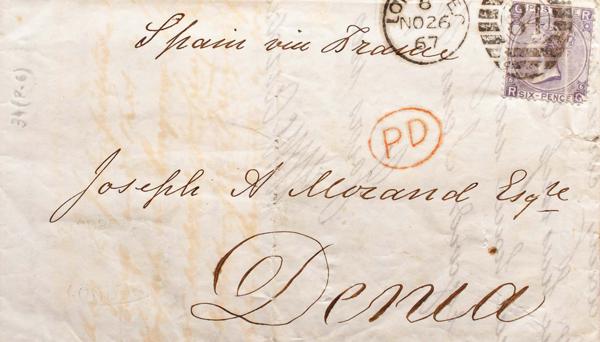 Spain via France
8
NO 26
67
SIX-PENCE
R G
PD
Joseph A Morand Esqre
Denia
34 (R-6)